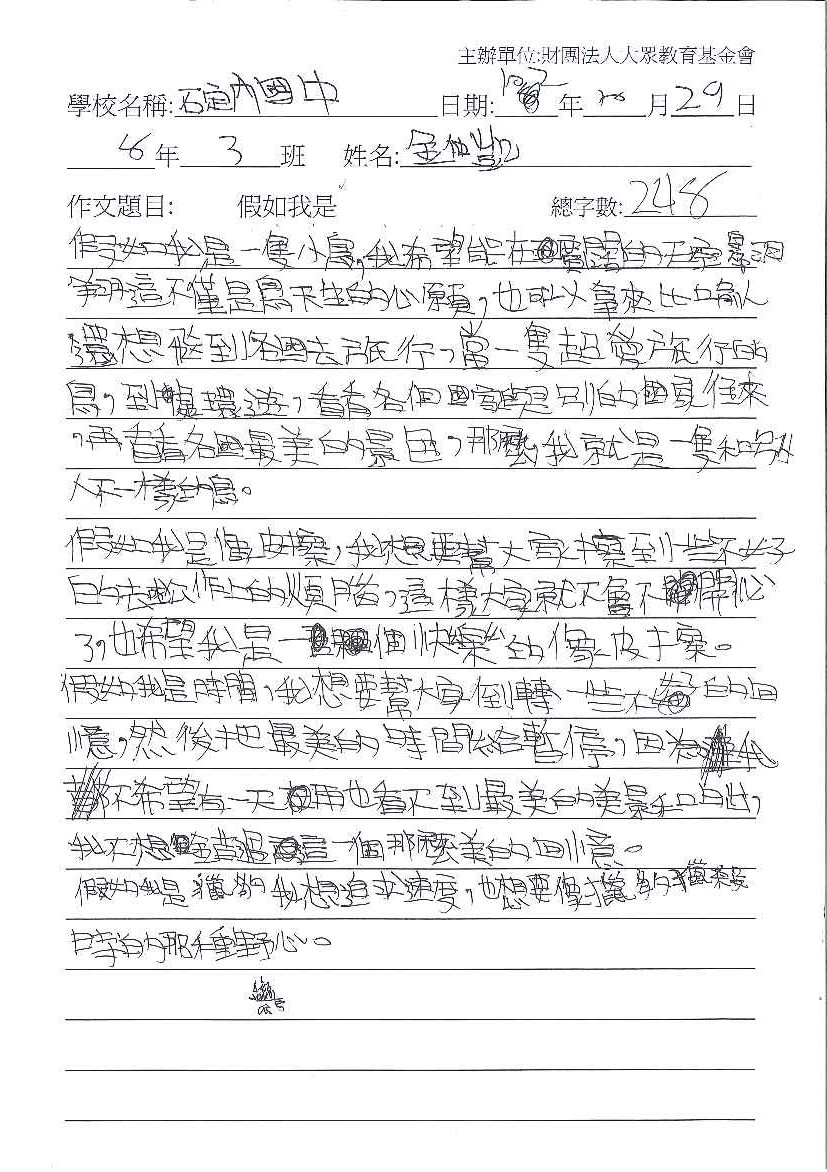 主辦單位:財團法人大眾教育基金會
學校名稱: 石定內國中 日期: 年 月 29 日
6 年 3 班 姓名: 金
作文題目: 假如我是 總字數: 248
假如我是一隻小鳥,我希望能在寬闊的天空翱
翔,這不僅是鳥天生的心願,也可以拿來比喻人
還想飛到各國去旅行,當一隻超愛旅行的
鳥,到處環遊,看看各個國家與別的國家往來
,再看看各國最美的景色,那麼我就是一隻和別
人不一樣的鳥。
假如我是橡皮擦,我想要幫大家擦到一些不好
的 煩腦,這樣大家就不會不開心
了,也希望我是一個快樂的像皮擦。
假如我是時間,我想要幫大家倒轉一些不好的回
憶,然後把最美的時間給暫停,因為我
不希望有一天再也看不到最美的美景和
我不想錯過這一個那麼美的回憶。
假如我是獵豹我想追求速度,也想要像獵豹獵
時的那種野心。